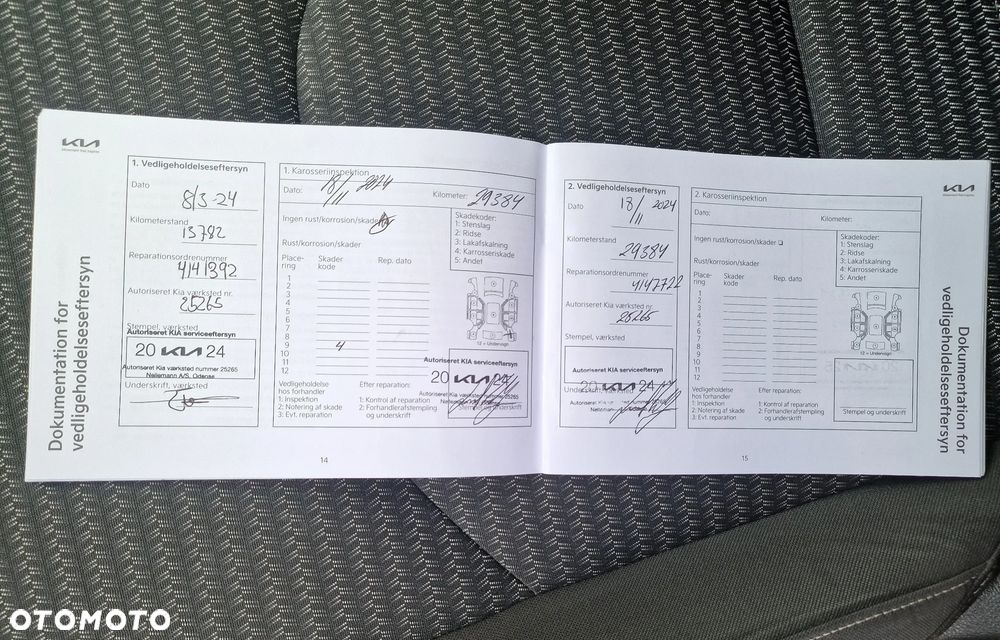 KIA
Dokumentation for
vedligeholdelseseftersyn
1. Vedligeholdelseseftersyn
Dato
8/3-24
Kilometerstand
15782
Reparationsordrenummer
4141392
Autoriseret Kia værksted nr.
25265
Stempel, værksted
Autoriseret KIA serviceeftersyn
20 KIA 24
Autoriseret Kia værksted nummer 25265
Nellemann A/S, Odense
Underskrift, værksted
1. Karosseriinspektion
Dato: 18/11 2024
Kilometer: 29384
Ingen rust/korrosion/skader
Rust/korrosion/skader
Skadekoder:
1: Stenslag
2: Ridse
3: Lakafskalning
4: Karrosseriskade
5: Andet
Place-
ring
Skader
kode
Rep. dato
1
2
3
4
5
6
7
8
9 4
10
11
12
12 = Undervogn
Vedligeholdelse
hos forhandler
1: Inspektion
2: Notering af skade
3: Evt. reparation
Efter reparation:
1: Kontrol af reparation
2: Forhandlerafstempling
og underskrift
Autoriseret KIA serviceeftersyn
20 KIA 24
Autoriseret Kia værksted nummer 25265
Stempel og underskrift
14
2. Vedligeholdelseseftersyn
Dato
18/11 2024
Kilometerstand
29384
Reparationsordrenummer
4147722
Autoriseret Kia værksted nr.
25265
Stempel, værksted
20 KIA 24
2. Karosseriinspektion
Dato:
Kilometer:
Ingen rust/korrosion/skader
Rust/korrosion/skader
Skadekoder:
1: Stenslag
2: Ridse
3: Lakafskalning
4: Karrosseriskade
5: Andet
Place-
ring
Skader
kode
Rep. dato
1
2
3
4
5
6
7
8
9
10
11
12
12 = Undervogn
Vedligeholdelse
hos forhandler
1: Inspektion
2: Notering af skade
3: Evt. reparation
Efter reparation:
1: Kontrol af reparation
2: Forhandlerafstempling
og underskrift
Stempel og underskrift
15
KIA
Dokumentation for
vedligeholdelseseftersyn
OTOMOTO